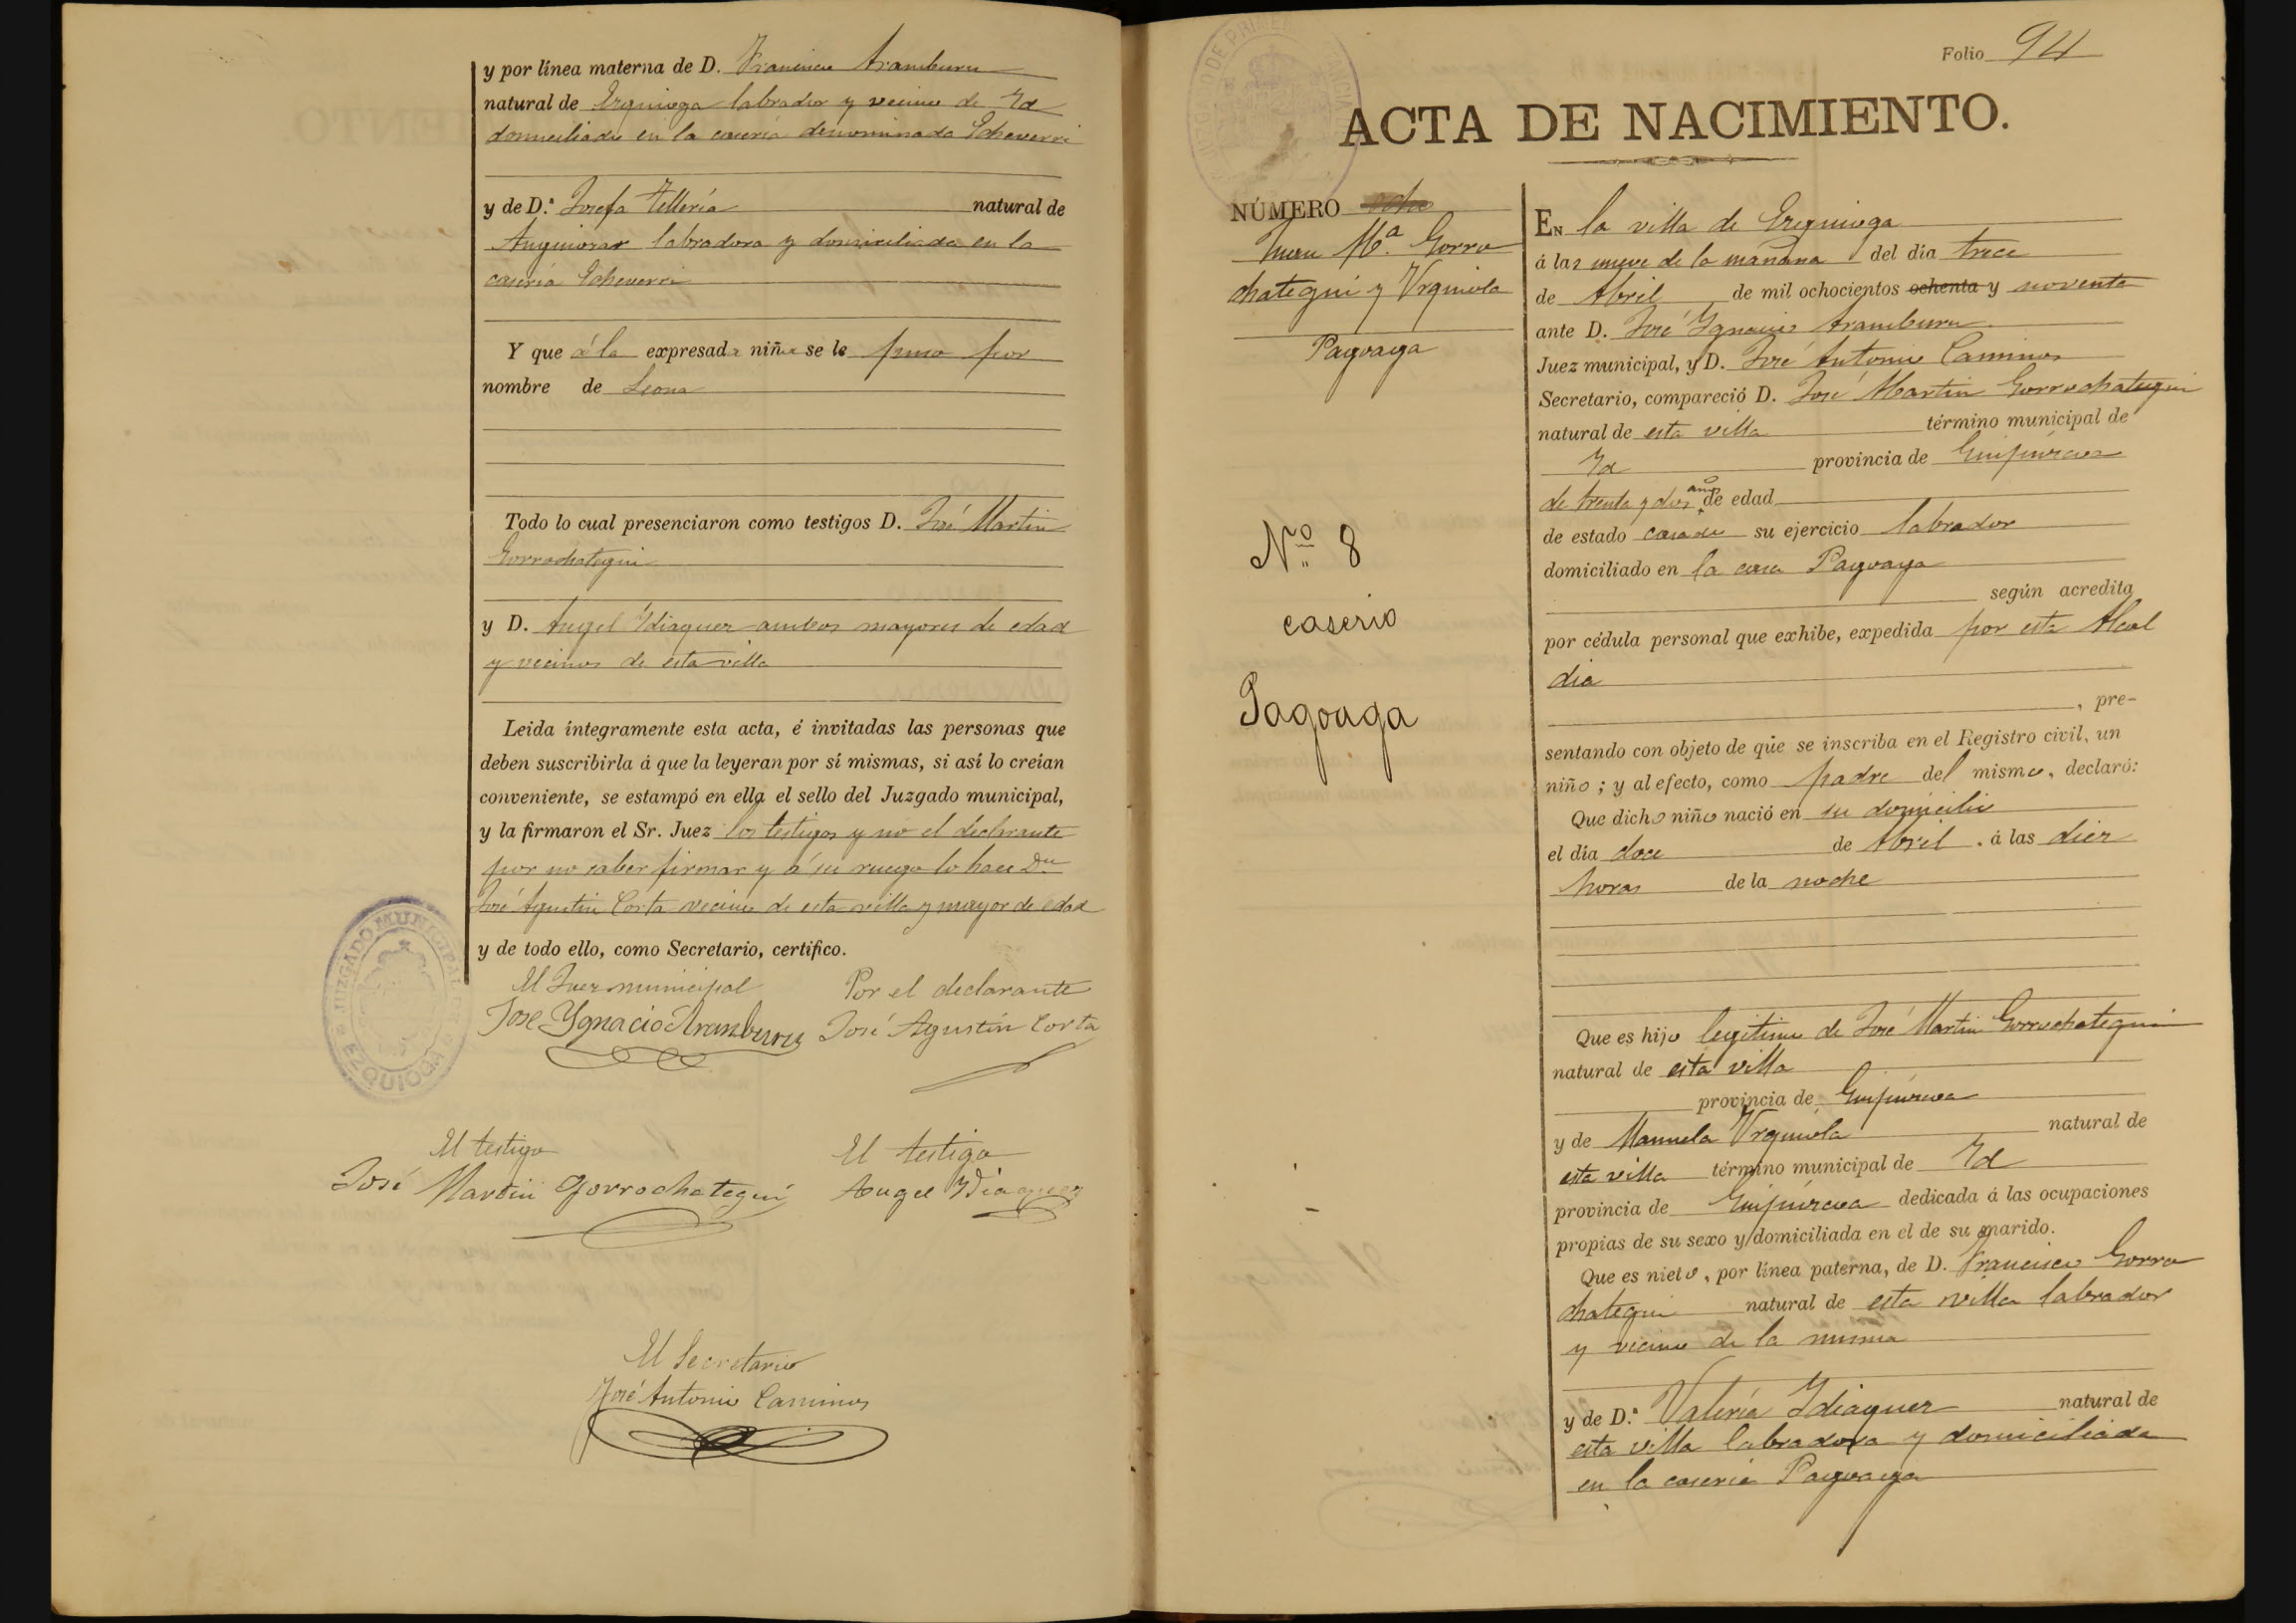 y por línea materna de D. Francisco Aramburu
natural de Ezquioga labrador y vecino de Id
domiciliado en la caseria denominada Echeverri
y de D.ª Josefa Tellería natural de
Anguiozar labradora y domiciliada en la
caseria Echeverri
Y que á la expresada niña se le puso por
nombre de Leona
Todo lo cual presenciaron como testigos D. José Martin
Gorrochategui
y D. Angel Ydiaquez ambos mayores de edad
y vecinos de esta villa
Leida íntegramente esta acta, é invitadas las personas que
deben suscribirla á que la leyeran por sí mismas, si así lo creían
conveniente, se estampó en ella el sello del Juzgado municipal,
y la firmaron el Sr. Juez los testigos y no el declarante
por no saber firmar y á su ruego lo hace Dn
José Agustin Corta vecino de esta villa y mayor de edad
y de todo ello, como Secretario, certifico.
El Juez municipal Por el declarante
Jose Ygnacio Aramburu José Agustín Corta
JUZGADO MUNICIPAL DE EZQUIOGA
El testigo El testigo
José Martin Gorrochategui Angel Ydiaquez
El Secretario
José Antonio Caminos
Folio 94
ACTA DE NACIMIENTO.
NÚMERO ocho
Juan Mª. Gorro
chategui y Urquiola
Pagoaga
Nº 8
caserio
Pagoaga
EN la villa de Ezquioga
á las nueve de la mañana del día trece
de Abril de mil ochocientos ochenta y noventa
ante D. José Ygnacio Aramburu
Juez municipal, y D. José Antonio Caminos
Secretario, compareció D. José Martin Gorrochategui
natural de esta villa término municipal de
Id provincia de Guipúzcoa
de treinta y dos años de edad
de estado casado su ejercicio labrador
domiciliado en la casa Pagoaga
según acredita
por cédula personal que exhibe, expedida por esta Alcal
dia
, pre-
sentando con objeto de que se inscriba en el Registro civil, un
niño; y al efecto, como padre del mismo, declaró:
Que dicho niño nació en su domicilio
el día doce de Abril. á las diez
horas de la noche
Que es hijo legitimo de José Martin Gorrochategui
natural de esta villa
provincia de Guipúzcoa
y de Manuela Urquiola natural de
esta villa término municipal de Id
provincia de Guipúzcoa dedicada á las ocupaciones
propias de su sexo y domiciliada en el de su marido.
Que es nieto, por línea paterna, de D. Francisco Gorro
chategui natural de esta villa labrador
y vecino de la misma
y de D.ª Valeria Ydiaquez natural de
esta villa labradora y domiciliada
en la caseria Pagoaga